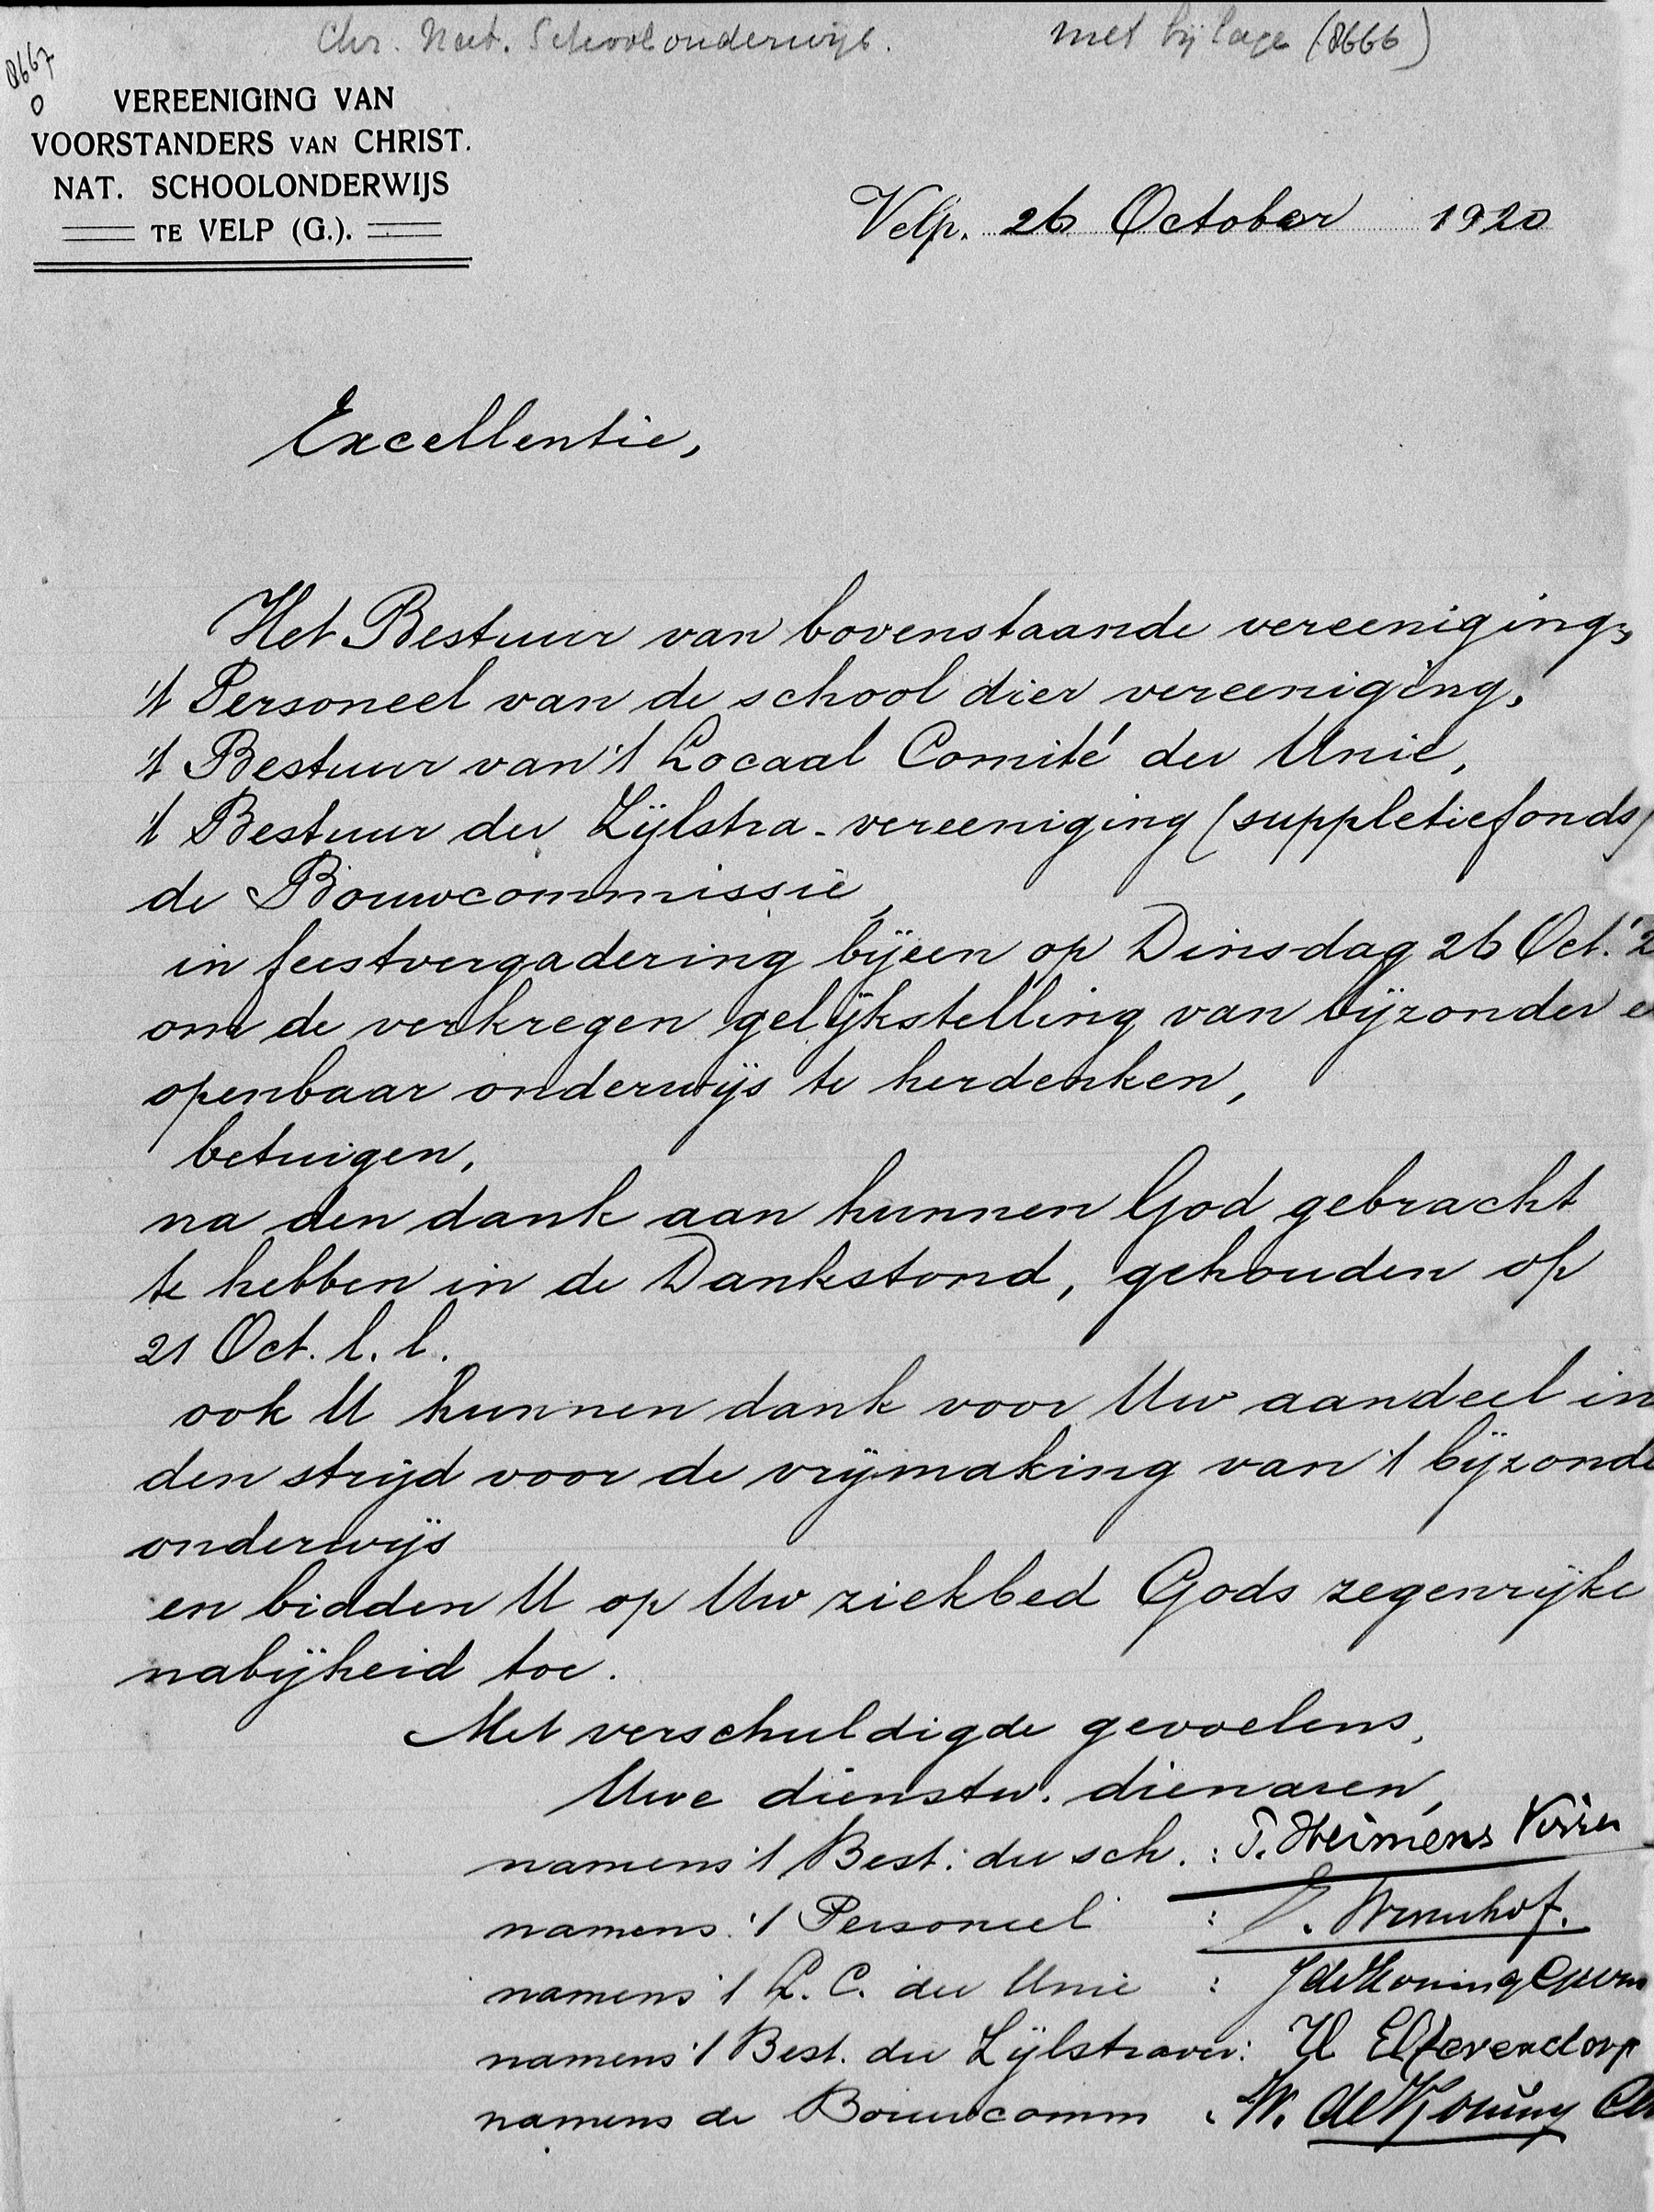 Chr. Nat. Schoolonderwijs. met bijlage (8666)
8667
0
VEREENIGING VAN
VOORSTANDERS VAN CHRIST.
NAT. SCHOOLONDERWIJS
TE VELP (G.).
Velp. 26 October 1920
Excellentie,
Het Bestuur van bovenstaande vereeniging,
't Personeel van de school dier vereeniging,
't Bestuur van 't Locaal Comité der Unie,
't Bestuur der Zijlstra-vereeniging (suppletiefonds)
de Bouwcommissie,
in feestvergadering bijeen op Dinsdag 26 Oct. '2
om de verkregen gelijkstelling van bijzonder e
openbaar onderwijs te herdenken,
betuigen,
na den dank aan hunnen God gebracht
te hebben in de Dankstond, gehouden op
21 Oct. l.l.
ook U hunnen dank voor Uw aandeel in
den strijd voor de vrijmaking van 't bijzonde
onderwijs
en bidden U op Uw ziekbed Gods zegenrijke
nabijheid toe.
Met verschuldigde gevoelens,
Uwe dienstw. dienaren,
namens 't Best. der sch. : T. Heimens Visser
namens 't Personeel :
namens 't L. C. der Unie : J de Koning
namens 't Best. der Zijlstraver: H Elfevendorp
namens de Bouwcomm : W. de Koning